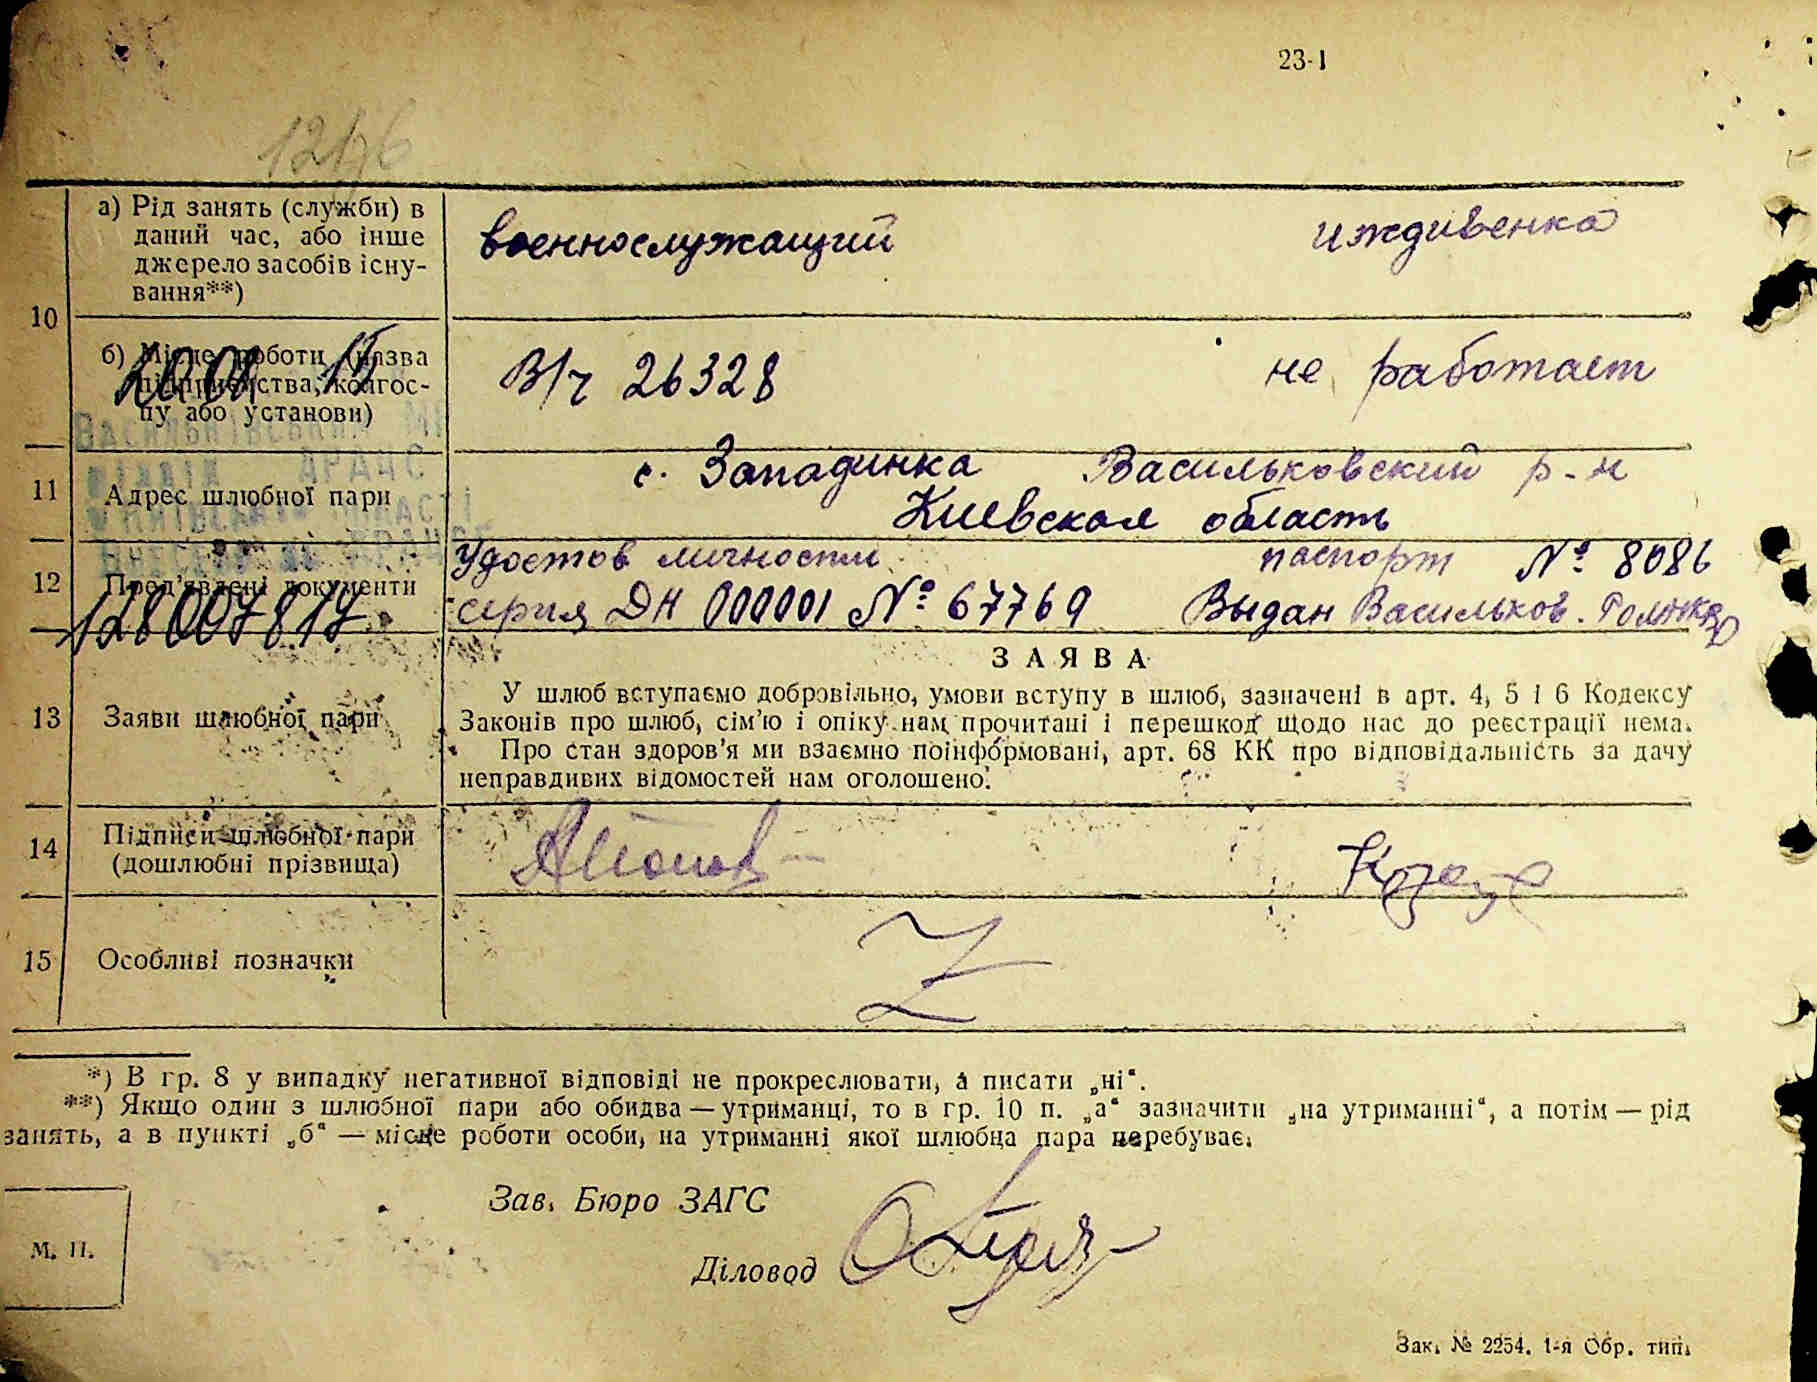 23-1
а) Рід занять (служби) в
даний час, або інше
джерело засобів існу-
вання**)
военнослужащий
иждивенка
10
б) Місце роботи (назва
підприємства, колгос-
пу або установи)
В/ч 26328
не работает
11
Адрес шлюбної пари
с. Западинка Васильковский р-н
Киевская область
12
Пред'явлені документи
Удостов личности
серия ДН 000001 № 67769
паспорт № 8086
Выдан Васильков.
128007817
13
Заяви шлюбної пари
ЗАЯВА
У шлюб вступаємо добровільно, умови вступу в шлюб, зазначені в арт. 4, 5 і 6 Кодексу
Законів про шлюб, сім'ю і опіку нам прочитані і перешкод щодо нас до реєстрації нема.
Про стан здоров'я ми взаємно поінформовані, арт. 68 КК про відповідальність за дачу
неправдивих відомостей нам оголошено.
14
Підписи шлюбної пари
(дошлюбні прізвища)
15
Особливі позначки
*) В гр. 8 у випадку негативної відповіді не прокреслювати, а писати „ні“.
**) Якщо один з шлюбної пари або обидва — утриманці, то в гр. 10 п. „а“ зазначити „на утриманні“, а потім — рід
занять, а в пункті „б“ — місце роботи особи, на утриманні якої шлюбна пара перебуває.
Зав. Бюро ЗАГС
Діловод
М. П.
Зак. № 2254. 1-я Обр. тип.